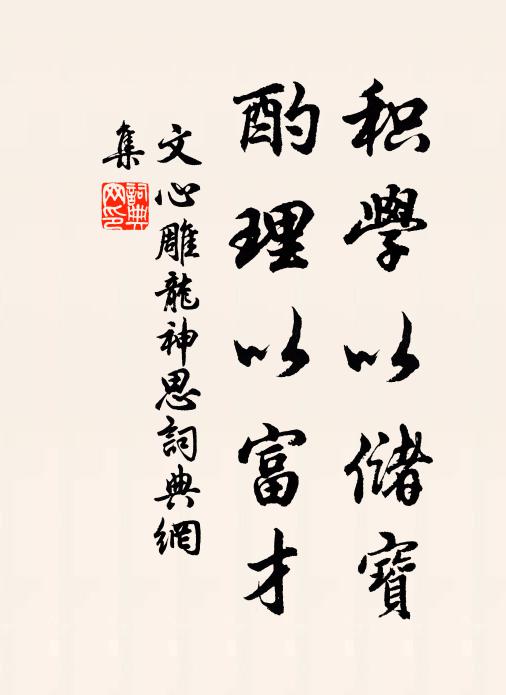 积學以儲寶
酌理以富才
文心雕龍神思詞典網
集
詞典网印